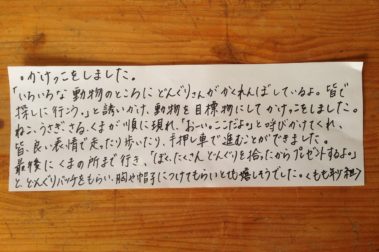 ・かけっこをしました。
「いろいろな動物のところにどんぐりさんがかくれんぼしているよ。皆で
探しに行こう。」と誘いかけ、動物を目標物にしてかけっこをしました。
ねこ、うさぎ、さる、くまが順に現れ、「おーい。ここだよ。」と呼びかけてくれ、
皆、良い表情で走ったり歩いたり、手押し車で進むことができました。
最後にくまの所まで行き、「ぼく、たくさんどんぐりを拾ったからプレゼントするよ。」
と、どんぐりバッヂをもらい、胸や帽子につけてもらいとても嬉しそうでした。